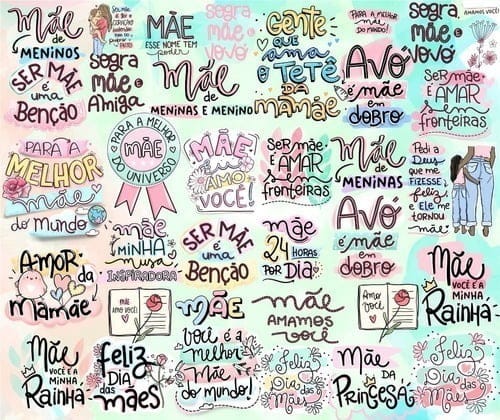 Mãe
DE
MENINOS
MÃE
ESSE NOME TEM
poder
Sogra
MÃE e
VOVÓ
Gente
QUE
ama
O TETÊ
DA
mamãe
PARA A MELHOR
MÃE
DO MUNDO!
Sogra
MÃE e
VOVÓ
AMAMOS VOCÊ!
SER MÃE
é uma
Benção
Sogra
MÃE e
Amiga
Mãe
DE
MENINAS E MENINO
AVÓ
é MÃE
em
DOBRO
SER mãe
é AMAR
sem
fronteiras
PARA A
MELHOR
mãe
do mundo
PARA A MELHOR
MÃE
DO UNIVERSO
MÃE
Eu
AMO
VOCÊ!
SER mãe
é AMAR
sem
fronteiras
Mãe
DE
MENINAS
Pedi a
Deus
que me
FIZESSE
feliz
e Ele me
tornou
mãe
mãe
MINHA
musa
INSPIRADORA
SER MÃE
é uma
Benção
mãe
24 HORAS
POR DIA
AVÓ
é MÃE
em
DOBRO
AMOR da
Mamãe
MÃE
AMO VOCÊ!
MÃE
você é a
melhor
Mãe
do mundo!
mãe
AMAMOS
VOCÊ
Amo
você!
Mãe
VOCÊ É A MINHA
Rainha
Mãe
VOCÊ É A MINHA
Rainha
feliz
DIA DAS
mães
Feliz
Dia das
Mães
Mãe
DA
PRINCESA
Feliz
Dia das
Mães